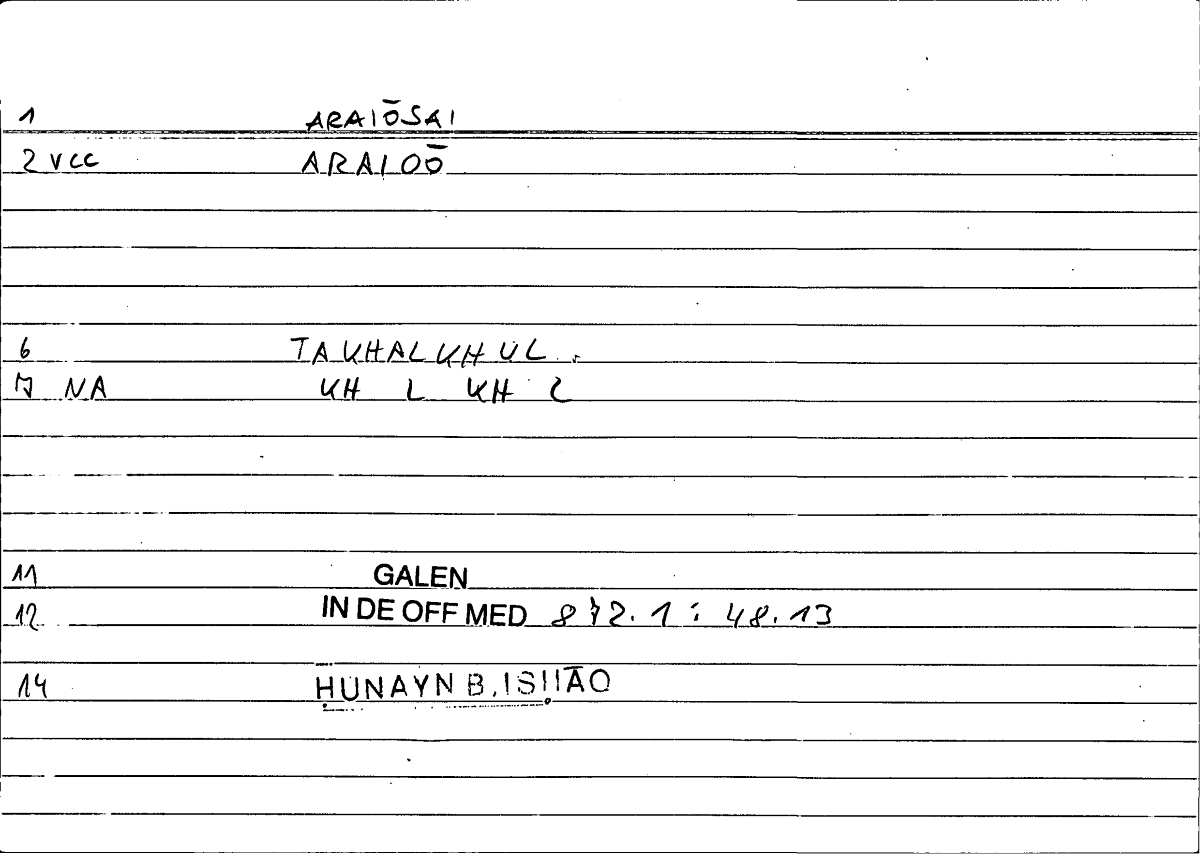 1 ARAIŌSAI
2 VCC ARAIOŌ
6 TAKHALKHUL.
7 NA KH L KH L
11 GALEN
12 IN DE OFF MED 872.1 : 48.13
14 ḤUNAYN B. ISḤĀQ